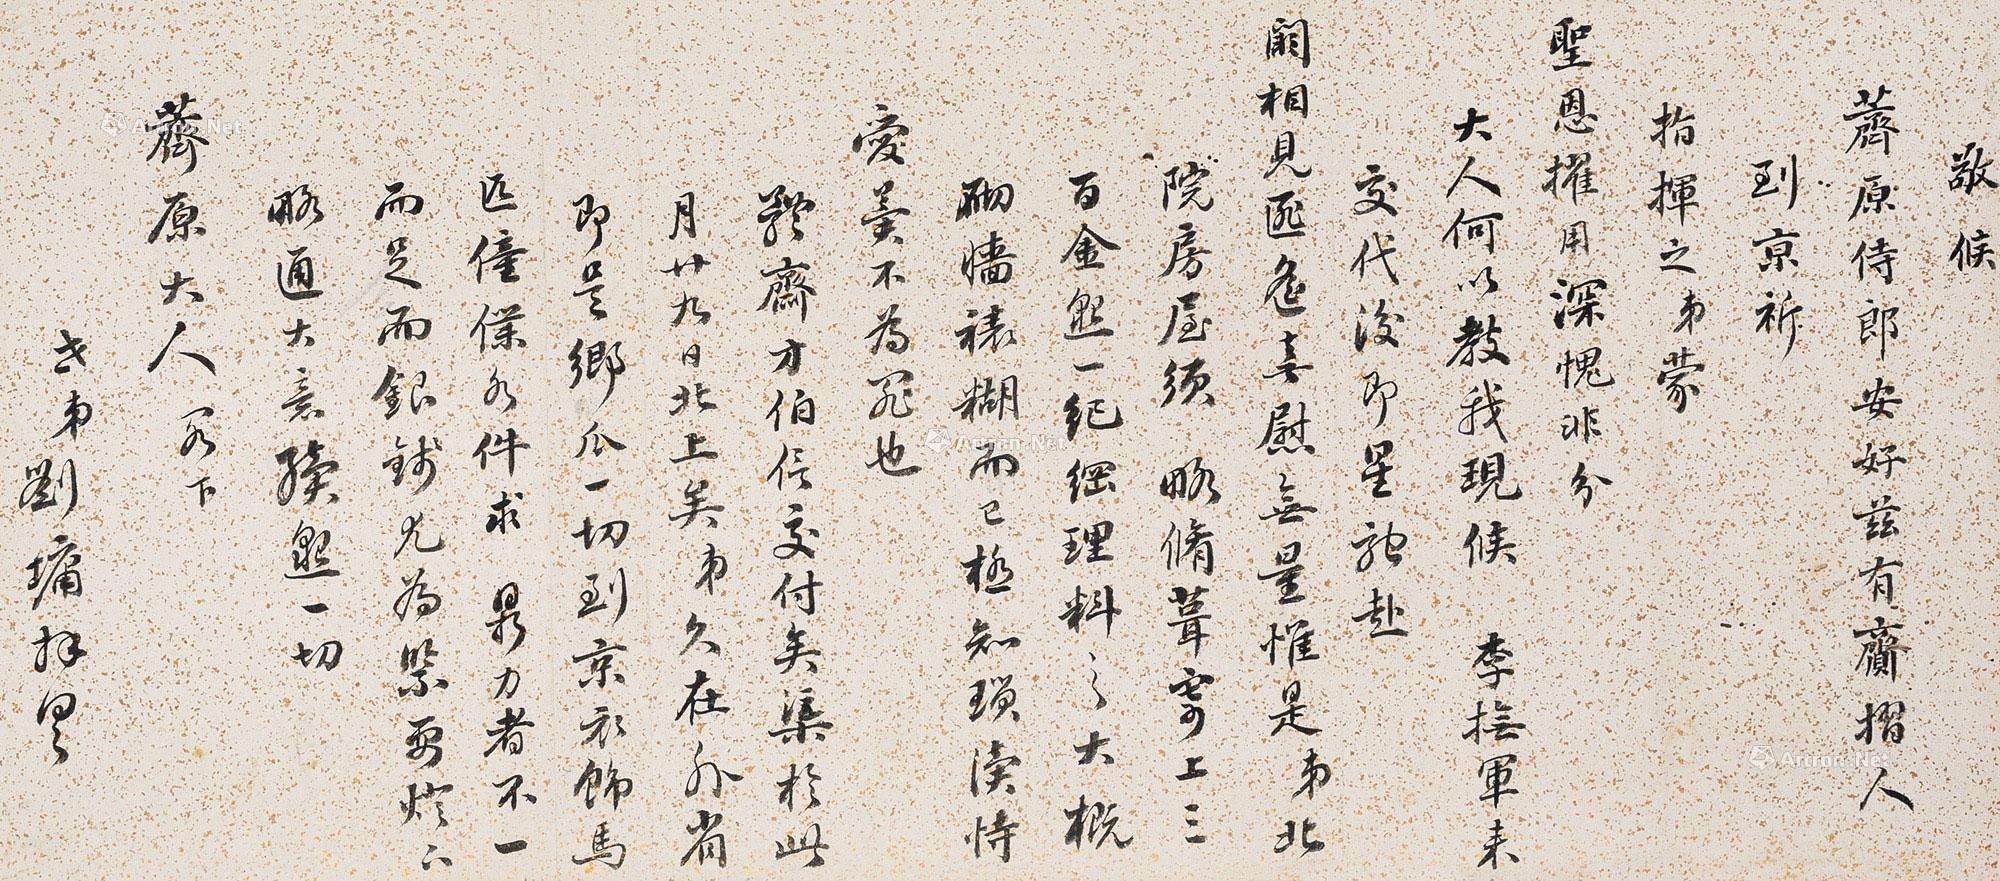 敬候
薺原侍郎安好茲有齎摺人
到京祈
指揮之弟蒙
聖恩擢用深愧非分
大人何以教我現候 李撫軍来
交代後即星馳赴
闕相見匪遙喜慰無量惟是弟北
院房屋須 略脩葺寄上三
百金懇一紀綱理料之大概
砌墻裱糊而已極知瑣瀆恃
愛矣不為罪也
齋方伯信交付矣渠於此
月廿九日北上矣弟久在外省
即是鄉瓜一切到京衣飾馬
匹僮僕各件求 鼎力者不一
而足而銀錢尤為緊要燈下
略通大意懇一切
薺原大人 閣下
世弟劉墉拜具
Artron.Net
Artron.Net
Artron.Net